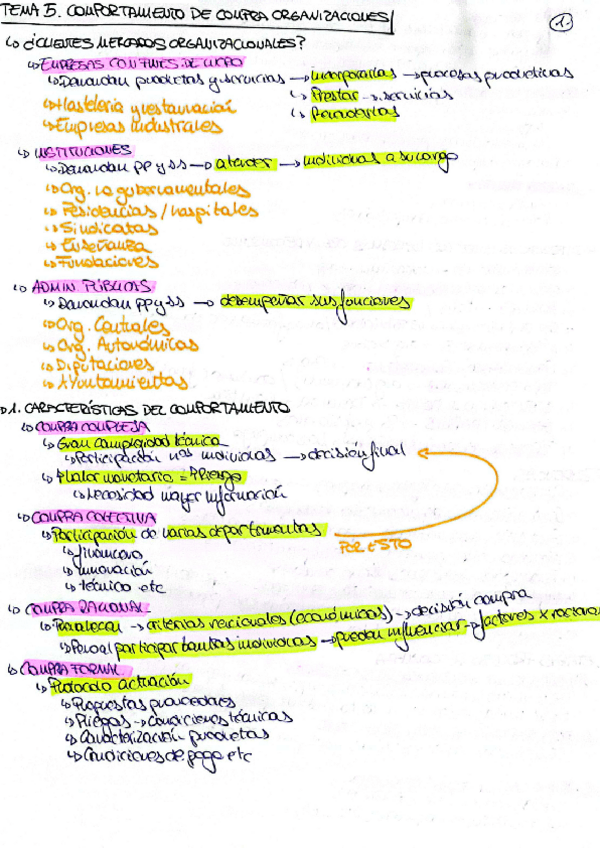 TEMA 5. COMPORTAMIENTO DE COMPRA ORGANIZACIONES
1.
↳ ¿CLIENTES MERCADOS ORGANIZACIONALES?
↳ EMPRESAS CON FINES DE LUCRO
↳ Demandan productos y servicios → incorporarlos → procesos productivos
↳ Hostelería y restauración ↳ Prestar → servicios
↳ Empresas industriales ↳ Revenderlos
↳ INSTITUCIONES
↳ Demandan pp y ss → atender → individuos a su cargo
↳ Org. no gubernamentales
↳ Residencias / hospitales
↳ Sindicatos
↳ Enseñanza
↳ Fundaciones
↳ ADMIN PÚBLICAS
↳ Demandan pp y ss → desempeñar sus funciones
↳ Org. Centrales
↳ Org. Autonómicas
↳ Diputaciones
↳ Ayuntamientos
1. CARACTERÍSTICAS DEL COMPORTAMIENTO
↳ COMPRA COMPLEJA
↳ Gran complejidad técnica
↳ Participación más individuos → decisión final
↳ ↑Valor monetario = ↑Riesgo
↳ Necesidad mayor información
↳ COMPRA COLECTIVA
↳ Participación de varios departamentos
POR ESTO
↳ financiero
↳ innovación
↳ técnico etc
↳ COMPRA RACIONAL
↳ Prevalecen → criterios racionales (económicos) → decisión compra
↳ Pero al participar tantos individuos → pueden influenciar → factores x racional
↳ COMPRA FORMAL
↳ Protocolo actuación
↳ Propuestas proveedores
↳ Pliegos → Condiciones técnicas
↳ Caracterización productos
↳ Condiciones de pago etc